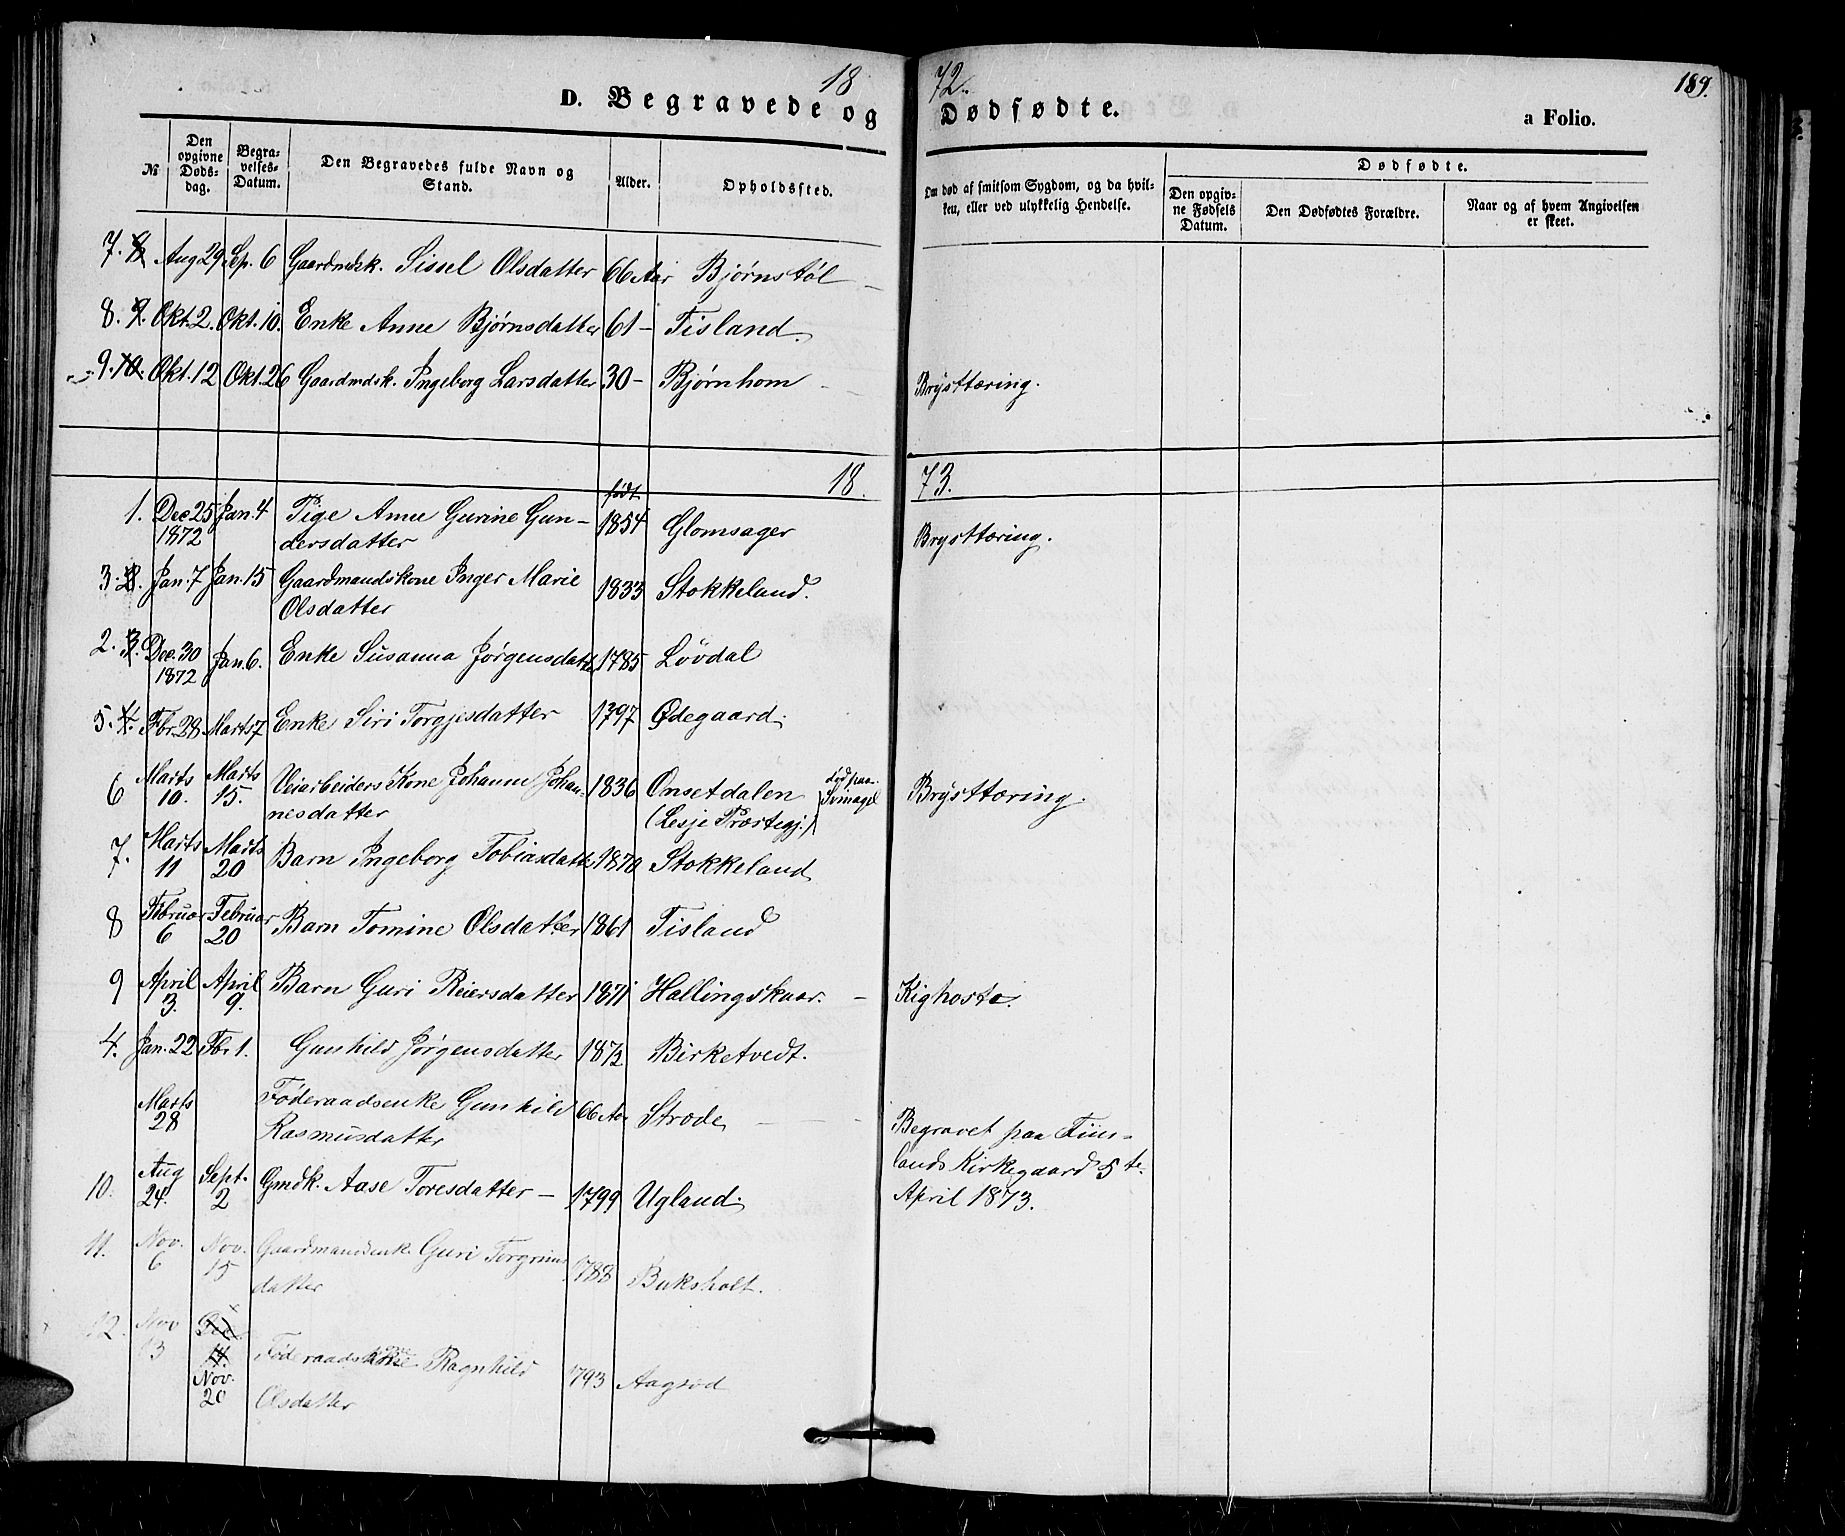 18 72. 189.
D. Begravede og Dødfødte. a Folio.
№ Den opgivne Døds-dag. Begra-velses-Datum. Den Begravedes fulde Navn og Stand. Alder. Opholdssted. Om død af smitsom Sygdom, og da hvil-ken, eller ved ulykkelig Hendelse. Dødfødte. Den opgiv-ne Fødsels Datum. Den Dødfødtes Forældre. Naar og af hvem Angivelsen er skeet.
7. 8 Aug 29 Sep. 6 Gaardmdsk. Sissel Olsdatter 66 Aar Bjørnstøl
8. 9. Okt. 2. Okt. 10. Enke Anne Bjørnsdatter 61 - Tisland.
9. 10. Okt. 12 Okt. 26 Gaardmdsk. Ingeborg Larsdatter 30 - Bjørnhom Brysttæring.
18. 73.
født
1. Dec 25 1872 Jan. 4 Pige Anne Gurine Gun-
dersdatter 1854 Glomsager Brysttæring.
3. 2. Jan. 7 Jan. 15 Gaardmandskone Inger Marie
Olsdatter 1833 Stokkeland.
2. 3. Dec. 30 1872 Jan. 6. Enke Susanna Jørgensdatter 1785 Lövdal
5. 4. Fbr. 28 Marts 7 Enke Siri Torgjesdatter 1797 Ødegaard.
6 Marts 10. Marts 15. Veiarbeiders Kone Johanne Johan-
nesdatter 1836 Onsetdalen
(Lesje Præstegj.) død paa Brysttæring.
7. Marts 11 Marts 20 Barn Ingeborg Tobiasdatter 1870 Stokkeland
8 Februar 6 Februar 20 Barn Tomine Olsdatter 1861 Tisland
9 April 3. April 9. Barn Guri Reiersdatter 1871 Hallingskaar. - Kighoste.
4. Jan. 22 Fbr 1. Gunhild Jørgensdatter 1872 Birketvedt.
Marts 28 Føderaadsenke Gunhild
Rasmusdatter 66 Aar Strøde Begravet paa Fins-
lands Kirkegaard 5te
April 1873.
10. Aug 24. Sept. 2 Gmdk. Aase Toresdatter - 1799 Ugland.
11. Nov. 6 Nov. 15 Gaardmandsenk. Guri Torgrims
datter 1788 Buksholt.
12. Nov 13 Dec. 14. Nov. 20 Føderaadskone Ragnhild
Olsdatter 1793 Aagsød